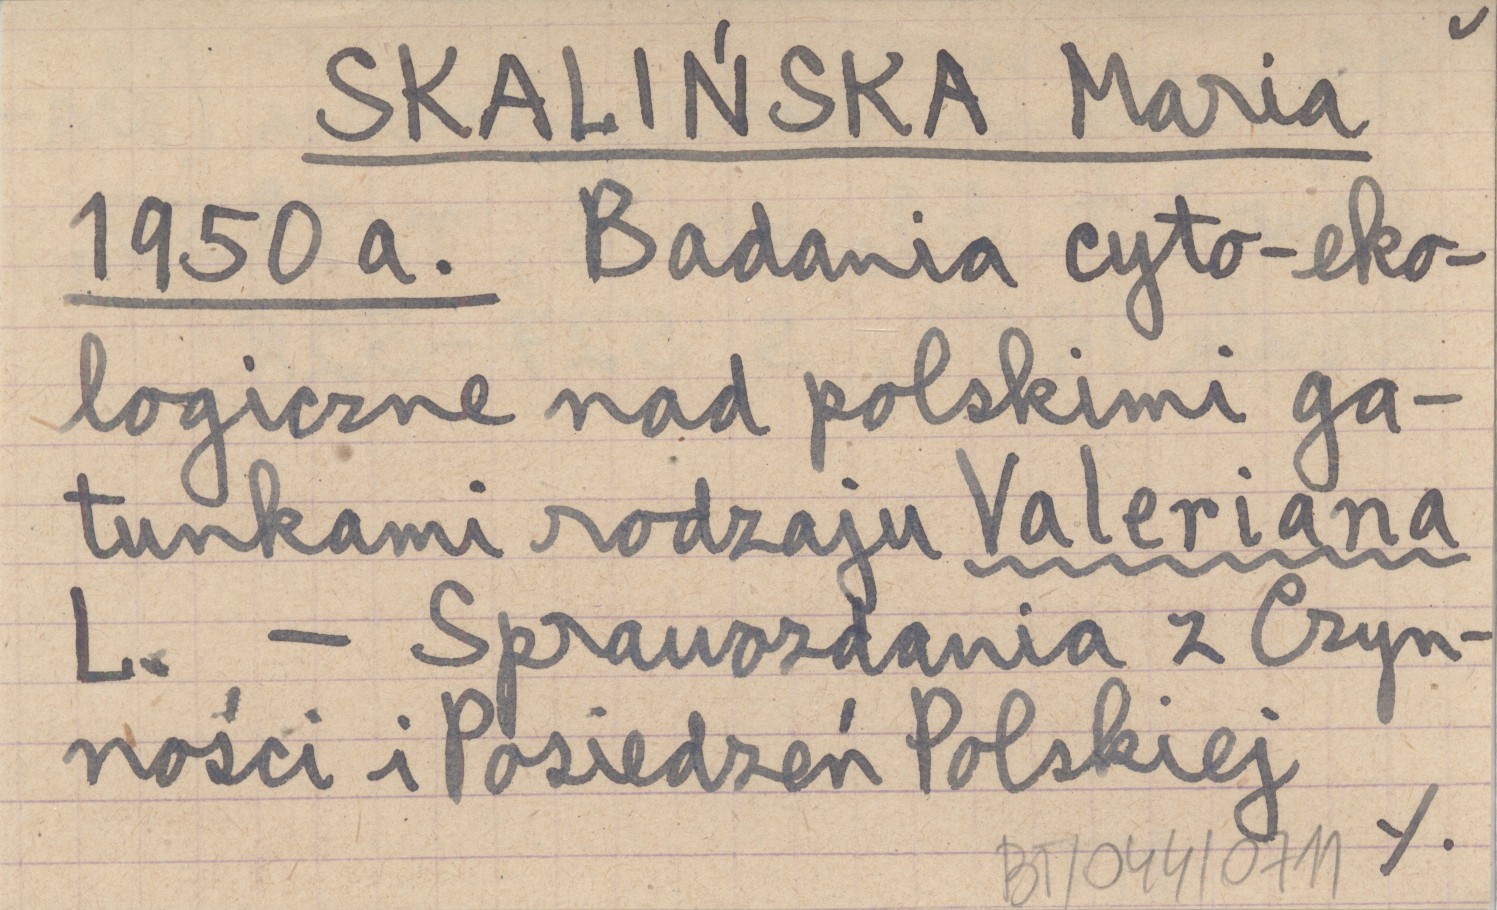 SKALIŃSKA Maria
1950 a. Badania cyto-eko-
logiczne nad polskimi ga-
tunkami rodzaju Valeriana
L. — Sprawozdania z Czyn-
ności i Posiedzeń Polskiej
./.
BT/044/0711